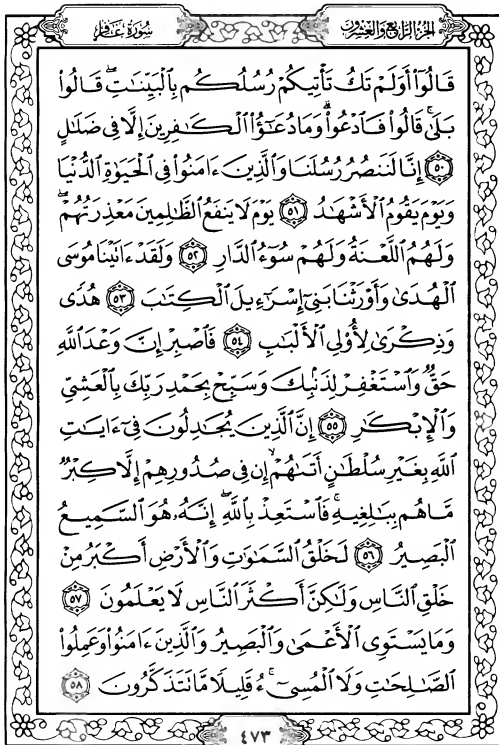 الجزء الرابع والعشرون سورة غافر
قَالُوٓا۟ أَوَلَمْ تَكُ تَأْتِيكُمْ رُسُلُكُم بِٱلْبَيِّنَٰتِ ۖ قَالُوا۟
بَلَىٰ ۚ قَالُوا۟ فَٱدْعُوا۟ ۗ وَمَا دُعَٰٓؤُا۟ ٱلْكَٰفِرِينَ إِلَّا فِى ضَلَٰلٍ
٥٠ إِنَّا لَنَنصُرُ رُسُلَنَا وَٱلَّذِينَ ءَامَنُوا۟ فِى ٱلْحَيَوٰةِ ٱلدُّنْيَا
وَيَوْمَ يَقُومُ ٱلْأَشْهَٰدُ ٥١ يَوْمَ لَا يَنفَعُ ٱلظَّٰلِمِينَ مَعْذِرَتُهُمْ ۖ
وَلَهُمُ ٱللَّعْنَةُ وَلَهُمْ سُوٓءُ ٱلدَّارِ ٥٢ وَلَقَدْ ءَاتَيْنَا مُوسَى
ٱلْهُدَىٰ وَأَوْرَثْنَا بَنِىٓ إِسْرَٰٓءِيلَ ٱلْكِتَٰبَ ٥٣ هُدًى
وَذِكْرَىٰ لِأُو۟لِى ٱلْأَلْبَٰبِ ٥٤ فَٱصْبِرْ إِنَّ وَعْدَ ٱللَّهِ
حَقٌّ وَٱسْتَغْفِرْ لِذَنۢبِكَ وَسَبِّحْ بِحَمْدِ رَبِّكَ بِٱلْعَشِىِّ
وَٱلْإِبْكَٰرِ ٥٥ إِنَّ ٱلَّذِينَ يُجَٰدِلُونَ فِىٓ ءَايَٰتِ
ٱللَّهِ بِغَيْرِ سُلْطَٰنٍ أَتَىٰهُمْ ۙ إِن فِى صُدُورِهِمْ إِلَّا كِبْرٌ
مَّا هُم بِبَٰلِغِيهِ ۚ فَٱسْتَعِذْ بِٱللَّهِ ۖ إِنَّهُۥ هُوَ ٱلسَّمِيعُ
ٱلْبَصِيرُ ٥٦ لَخَلْقُ ٱلسَّمَٰوَٰتِ وَٱلْأَرْضِ أَكْبَرُ مِنْ
خَلْقِ ٱلنَّاسِ وَلَٰكِنَّ أَكْثَرَ ٱلنَّاسِ لَا يَعْلَمُونَ ٥٧
وَمَا يَسْتَوِى ٱلْأَعْمَىٰ وَٱلْبَصِيرُ وَٱلَّذِينَ ءَامَنُوا۟ وَعَمِلُوا۟
ٱلصَّٰلِحَٰتِ وَلَا ٱلْمُسِىٓءُ ۚ قَلِيلًا مَّا تَتَذَكَّرُونَ ٥٨
٤٧٣